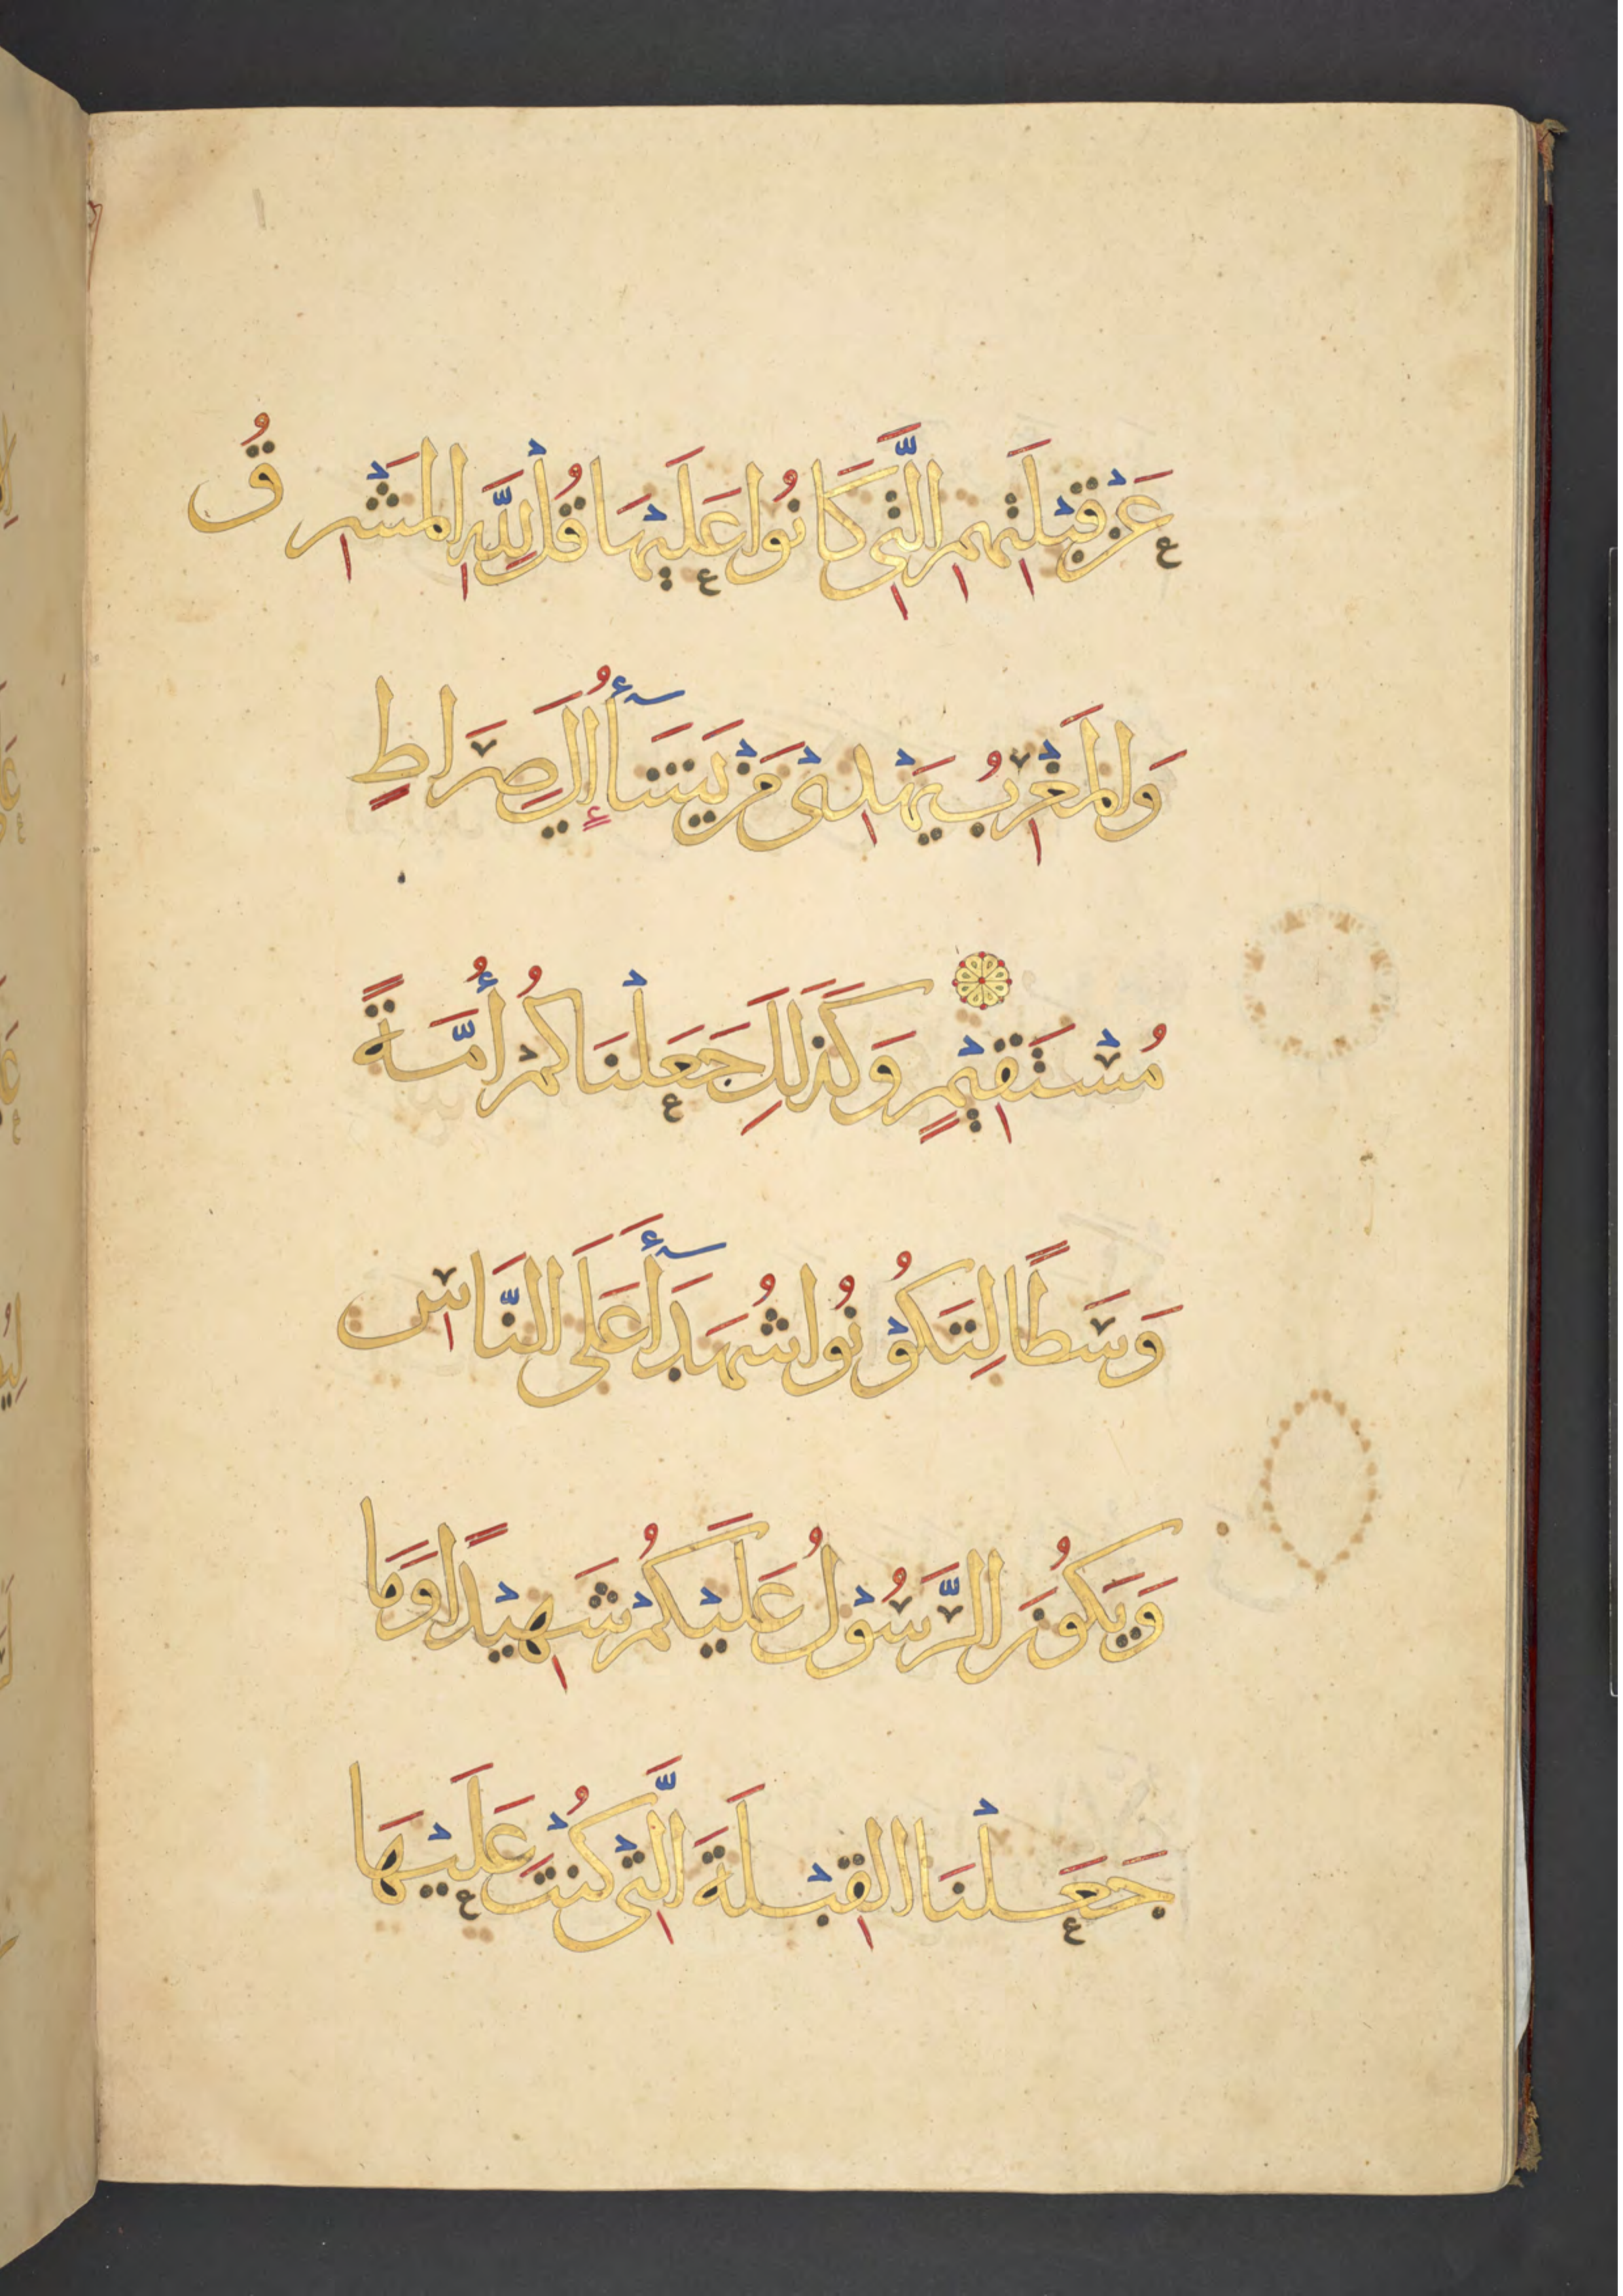 عَنْ قِبْلَتِهِمِ الَّتِي كَانُوا عَلَيْهَا قُلْ لِلَّهِ الْمَشْرِقُ
وَالْمَغْرِبُ يَهْدِيْ مَنْ يَشَآأُ إِلَى صِرَاطٍ
مُسْتَقِيْمٍ وَكَذَلِكَ جَعَلْنَاكُمْ أُمَّةً
وَسَطًا لِتَكُوْنُوا شُهَدَآأَ عَلَى النَّاسِ
وَيَكُوْنَ الرَّسُوْلُ عَلَيْكُمْ شَهِيْدًا وَمَا
جَعَلْنَا الْقِبْلَةَ الَّتِيْ كُنْتَ عَلَيْهَا